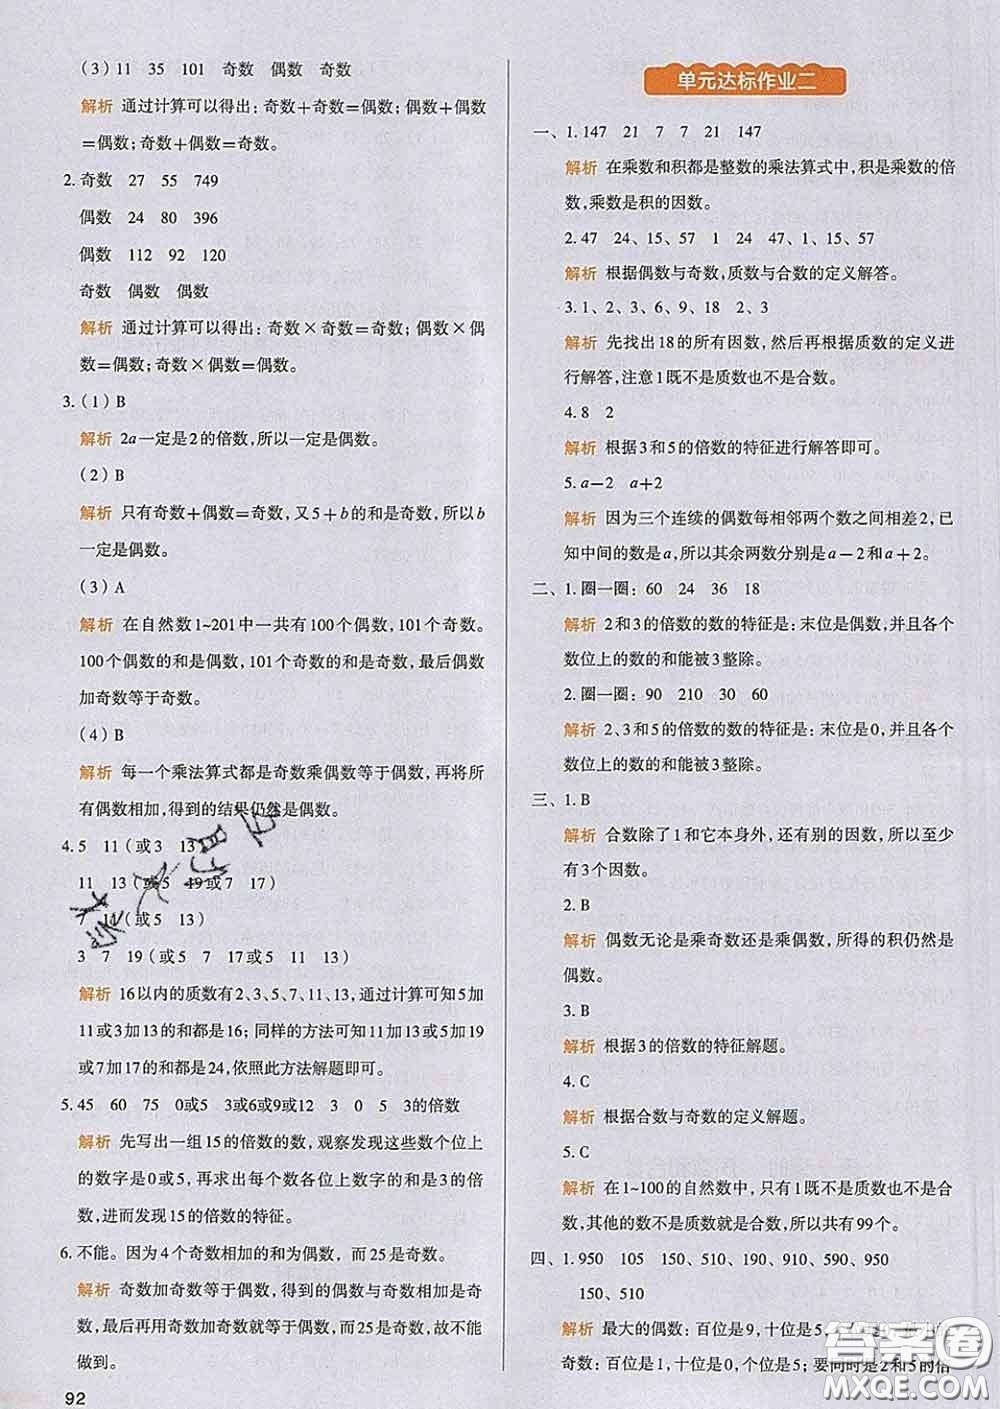 (3)11 35 101 奇数 偶数 奇数
解析 通过计算可以得出:奇数+奇数=偶数;偶数+偶数
=偶数;奇数+偶数=奇数。
2. 奇数 27 55 749
偶数 24 80 396
偶数 112 92 120
奇数 偶数 偶数
解析 通过计算可以得出:奇数×奇数=奇数;偶数×偶
数=偶数;奇数×偶数=偶数。
3.(1)B
解析 2a一定是2的倍数,所以一定是偶数。
(2)B
解析 只有奇数+偶数=奇数,又5+b的和是奇数,所以b
一定是偶数。
(3)A
解析 在自然数1~201中一共有100个偶数,101个奇数。
100个偶数的和是偶数,101个奇数的和是奇数,最后偶数
加奇数等于奇数。
(4)B
解析 每一个乘法算式都是奇数乘偶数等于偶数,再将所
有偶数相加,得到的结果仍然是偶数。
4.5 11(或3 13)
11 13(或5 19或7 17)
7 11(或5 13)
3 7 19(或5 7 17或5 11 13)
解析 16以内的质数有2、3、5、7、11、13,通过计算可知5加
11或3加13的和都是16;同样的方法可知11加13或5加19
或7加17的和都是24,依照此方法解题即可。
5.45 60 75 0或5 3或6或9或12 3 0 5 3的倍数
解析 先写出一组15的倍数的数,观察发现这些数个位上
的数字是0或5,再求出每个数各位上的数字的和是3的倍
数,进而发现15的倍数的特征。
6.不能。因为4个奇数相加的和为偶数,而25是奇数。
解析 奇数加奇数等于偶数,得到的偶数与奇数相加是奇
数,最后再用奇数加奇数就等于偶数,而25是奇数,故不能
做到。
92
单元达标作业二
一、1.147 21 7 7 21 147
解析 在乘数和积都是整数的乘法算式中,积是乘数的倍
数,乘数是积的因数。
2.47 24、15、57 1 24 47、1、15、57
解析 根据偶数与奇数,质数与合数的定义解答。
3.1、2、3、6、9、18 2、3
解析 先找出18的所有因数,然后再根据质数的定义进
行解答,注意1既不是质数也不是合数。
4.8 2
解析 根据3和5的倍数的特征进行解答即可。
5.a-2 a+2
解析 因为三个连续的偶数每相邻两个数之间相差2,已
知中间的数是a,所以其余两数分别是a-2和a+2。
二、1.圈一圈:60 24 36 18
解析 2和3的倍数的数的特征是:末位是偶数,并且各个
数位上的数的和能被3整除。
2.圈一圈:90 210 30 60
解析 2、3和5的倍数的数的特征是:末位是0,并且各个
数位上的数的和能被3整除。
三、1.B
解析 合数除了1和它本身外,还有别的因数,所以至少
有3个因数。
2.B
解析 偶数无论是乘奇数还是乘偶数,所得的积仍然是
偶数。
3.B
解析 根据3的倍数的特征解题。
4.C
解析 根据合数与奇数的定义解题。
5.C
解析 在1~100的自然数中,只有1既不是质数也不是合
数,其他的数不是质数就是合数,所以共有99个。
四、1.950 105 150、510、190、910、590、950
150、510
解析 最大的偶数:百位是9,十位是5,
奇数:百位是1,十位是0,个位是5;要同时是2和5的倍
答案圈
MXQE.COM